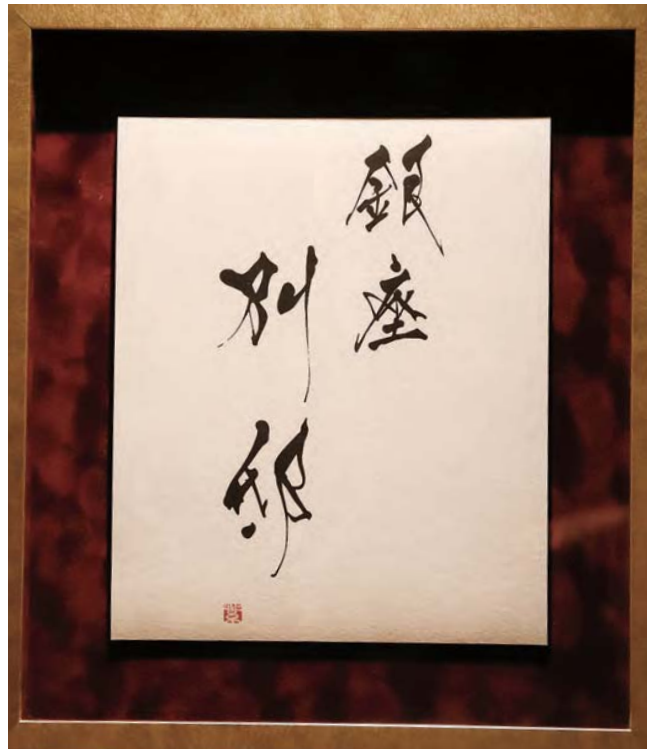 銀座
別邸